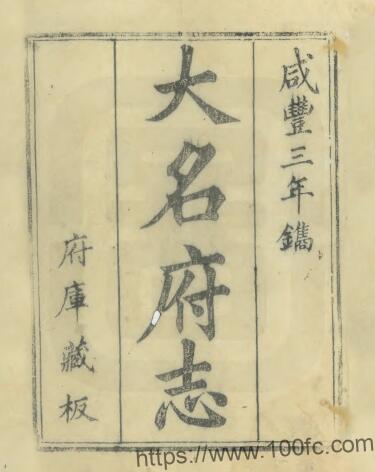 咸豐三年鐫
大名府志
府庫藏板
https://www.100fc.com